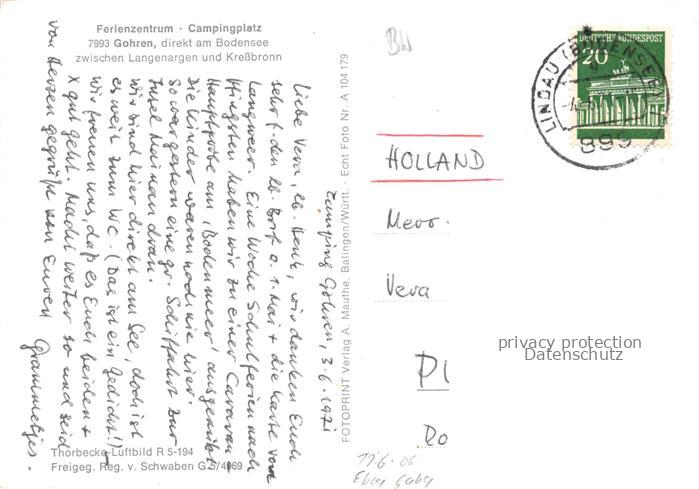 Ferienzentrum · Campingplatz
7993 Gohren, direkt am Bodensee
zwischen Langenargen und Kreßbronn
Camping Gohren, 3.6.1971
Liebe Vera, lb. Henk, wir danken Euch
sehr f. den lb. Brf. a. 1. Mai + die Karte vom
Langweer. Eine Woche Schulferien nach
Pfingsten haben wir zu einer Caravan-
Hauptprobe am "Bodenmeer" ausgenützt.
Die Kinder waren noch nie hier.
So war gestern eine gr. Schiffahrt zur
Insel Mainau dran.
Wir sind hier direkt am See, doch ist
es weit zum WC. (Das ist ein Gedicht!)
Wir freuen uns, daß es Euch beiden +
X gut geht. Macht weiter so und seid
von Herzen gegrüßt von Euren
Grammetjes.
Thorbecke-Luftbild R 5-194
Freigeg. Reg. v. Schwaben G 5/4969
FOTOPRINT Verlag A. Mauthe, Balingen/Württ. · Echt Foto Nr. A 104 179
BW
DEUTSCHE BUNDESPOST
20
LINDAU (BODENSEE)
899
HOLLAND
Mevr.
Vera
Pl
Do
privacy protection
Datenschutz